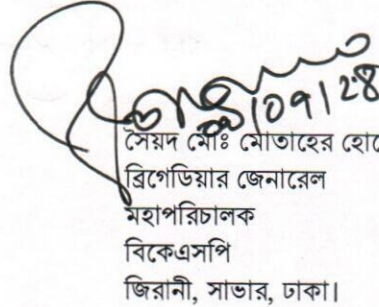 সৈয়দ মোঃ মোতাহের হোে
ব্রিগেডিয়ার জেনারেল
মহাপরিচালক
বিকেএসপি
জিরানী, সাভার, ঢাকা।